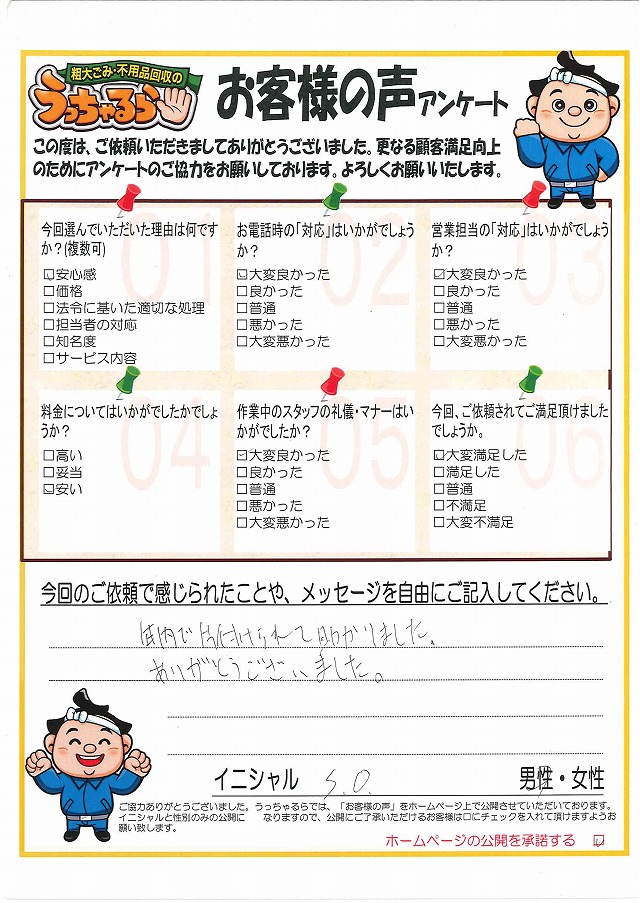 粗大ごみ・不用品回収の
うっちゃるら
お客様の声アンケート
この度は、ご依頼いただきましてありがとうございました。更なる顧客満足向上
のためにアンケートのご協力をお願いしております。よろしくお願いいたします。
01
今回選んでいただいた理由は何です
か？(複数可)
☑安心感
□価格
□法令に基いた適切な処理
□担当者の対応
□知名度
□サービス内容
02
お電話時の「対応」はいかがでしょう
か？
☑大変良かった
□良かった
□普通
□悪かった
□大変悪かった
03
営業担当の「対応」はいかがでしょう
か？
☑大変良かった
□良かった
□普通
□悪かった
□大変悪かった
04
料金についてはいかがでしたかでしょ
うか？
□高い
□妥当
☑安い
05
作業中のスタッフの礼儀・マナーはい
かがでしたか？
☑大変良かった
□良かった
□普通
□悪かった
□大変悪かった
06
今回、ご依頼されてご満足頂けました
でしょうか。
☑大変満足した
□満足した
□普通
□不満足
□大変不満足
今回のご依頼で感じられたことや、メッセージを自由にご記入してください。
内で片付けられて助かりました。
ありがとうございました。
イニシャル S.O. 男性・女性
ご協力ありがとうございました。うっちゃるらでは、「お客様の声」をホームページ上で公開させていただいております。
イニシャルと性別のみの公開に　なりますので、公開にご了承いただけるお客様は□にチェックを入れて頂けますようお
願い致します。
ホームページの公開を承諾する ☑